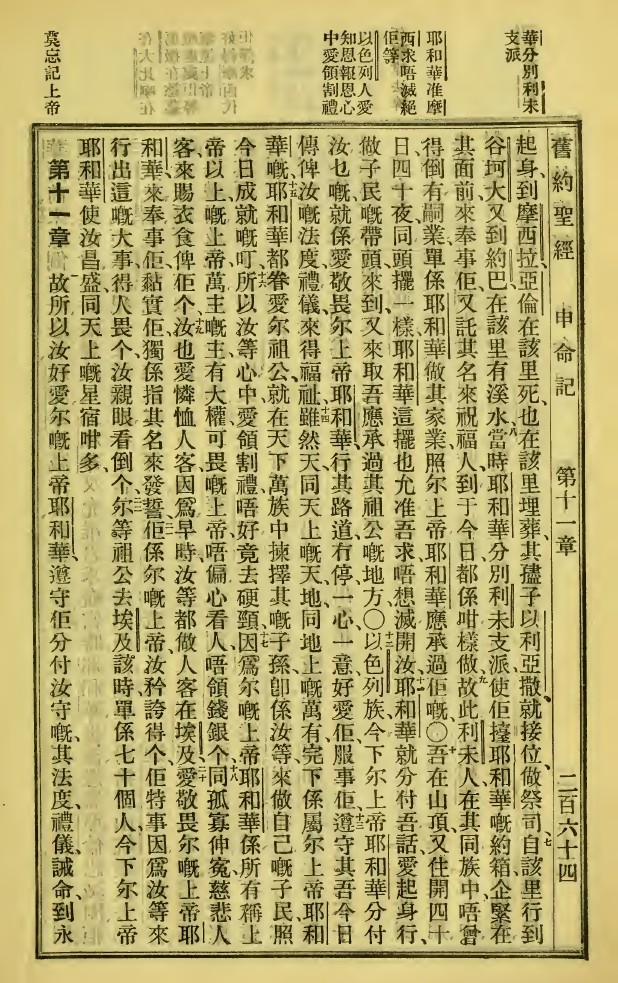 華分別利未
支派
耶和華准摩
西求唔滅絕
佢等
以色列人愛
知恩報恩心
中愛領割禮
莫忘記上帝
舊約聖經 申命記 第十一章 二百六十四
起身、到摩西拉、亞倫在該里死、也在該里埋葬、其𠊎子以利亞撒、就接位、做祭司、七自該里行到
谷坷大、又到約巴、在該里有溪水、八當時耶和華分別利未支派、使佢擡耶和華嘅約箱、企緊在
其面前來奉事佢、又託其名來祝福人、到于今日都係咁樣做、九故此利未人在其同族中、唔曾
得倒有嗣業、單係耶和華做其家業、照尔上帝耶和華應承過佢嘅、〇十吾在山頂、又住開四十
日四十夜、同頭擺一樣、耶和華這擺也允准吾求、唔想滅開汝、十一耶和華就分付吾話、愛起身行、
做子民嘅帶頭、來到又來取吾應承過其祖公嘅地方、〇十二以色列族、今下尔上帝耶和華分付
汝也嘅、就係愛敬畏尔上帝耶和華、行其路道、冇停一心一意好愛佢、服事佢、十三遵守其吾今日
傳俾汝嘅法度禮儀、來得福祉、十四雖然天同天上嘅天、地同地上嘅萬有、完下係屬尔上帝耶和
華嘅、十五耶和華都眷愛尔祖公、就在天下萬族中、揀擇其嘅子孫、卽係汝等、來做自己嘅子民、照
今日成就嘅叮、十六所以汝等心中愛領割禮、唔好竟去硬頸、十七因爲尔嘅上帝耶和華、係所有稱上
帝以上嘅上帝、萬主嘅主、有大權可畏嘅上帝、唔偏心看人、唔領錢銀个、十八同孤寡伸寃、慈悲人
客、來賜衣食俾佢个、十九汝也愛憐恤人客、因爲早時汝等都做人客在埃及、二十愛敬畏尔嘅上帝耶
和華、來奉事佢、黏實佢、獨係指其名來發誓、二一佢係尔嘅上帝、汝矜誇得个、佢特事因爲汝等來
行出這嘅大事、得人畏个、汝親眼看倒个、二二尔等祖公去埃及該時、單係七十個人、今下尔上帝
耶和華使汝昌盛、同天上嘅星宿咁多、
第十一章 一故所以汝好愛尔嘅上帝耶和華、遵守佢分付汝守嘅、其法度、禮儀、誡命、到永